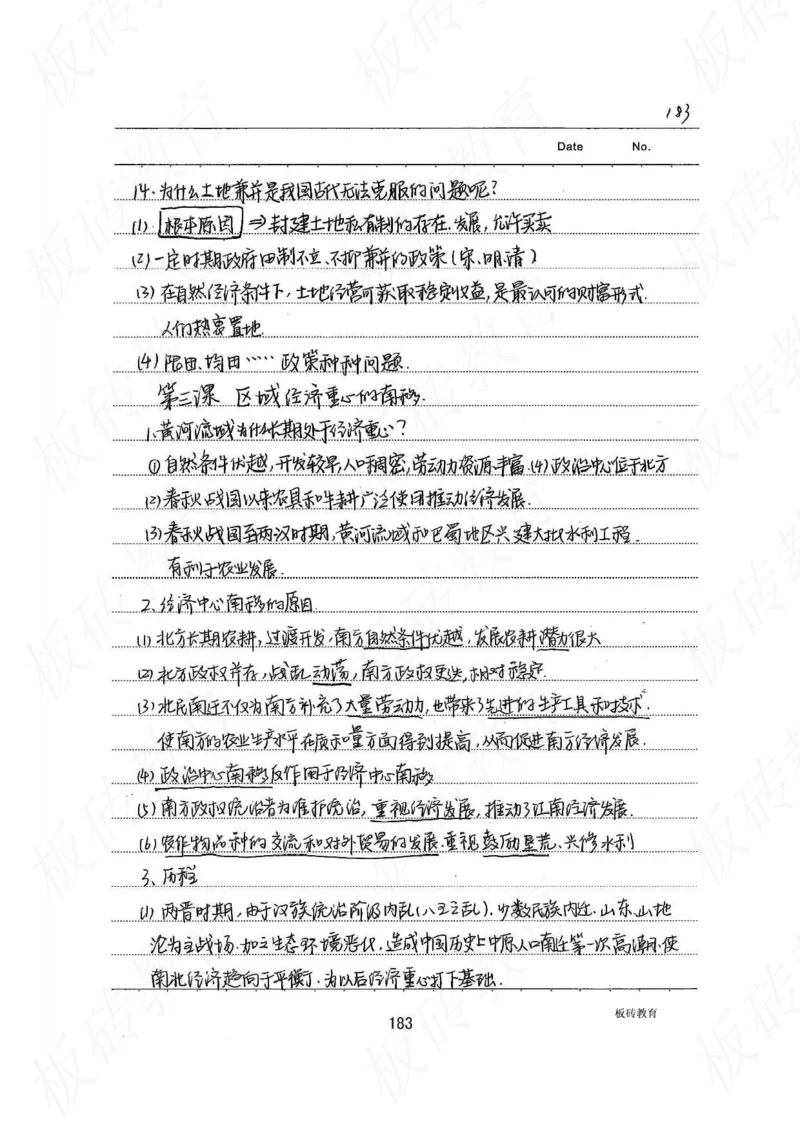 183
Date No.
14.为什么土地兼并是我国古代无法克服的问题呢?
(1) 根本原因 ⇒封建土地私有制的存在.发展,允许买卖
(2)一定时期政府田制不立、不抑兼并的政策(宋、明.清)
(3)在自然经济条件下,土地经营可获取稳定收益,是最认可的财富形式.
人们热衷置地
(4)限田、均田……政策种种问题.
第三课 区域经济重心的南移.
1.黄河流域为什么长期处于经济重心?
①自然条件优越,开发较早,人口稠密,劳动力资源丰富.(4)政治中心位于北方
(2)春秋战国以来农具和牛耕广泛使用推动经济发展.
(3)春秋战国至两汉时期,黄河流域和巴蜀地区兴建大批水利工程.
有利于农业发展.
2、经济中心南移的原因
(1)北方长期农耕,过渡开发,南方自然条件优越,发展农耕潜力很大
(2)北方政权并存,战乱动荡,南方政权更迭,相对稳定.
(3)北民南迁不仅为南方补充了大量劳动力,也带来了先进的生产工具和技术.
使南方的农业生产水平在质和量方面得到提高,从而促进南方经济发展.
(4)政治中心南移反作用于经济中心南移
(5)南方政权统治者为维护统治,重视经济发展,推动了江南经济发展.
(6)农作物品种的交流和对外贸易的发展.重视鼓励垦荒、兴修水利
3、历程
(1)两晋时期,由于汉族统治阶级内乱(八王之乱).少数民族内迁.山东、山地
沦为主战场.加之生态环境恶化,造成中国历史上中原人口南迁第一次高潮.使
南北经济趋向于平衡.为以后经济重心打下基础.
183
板砖教育